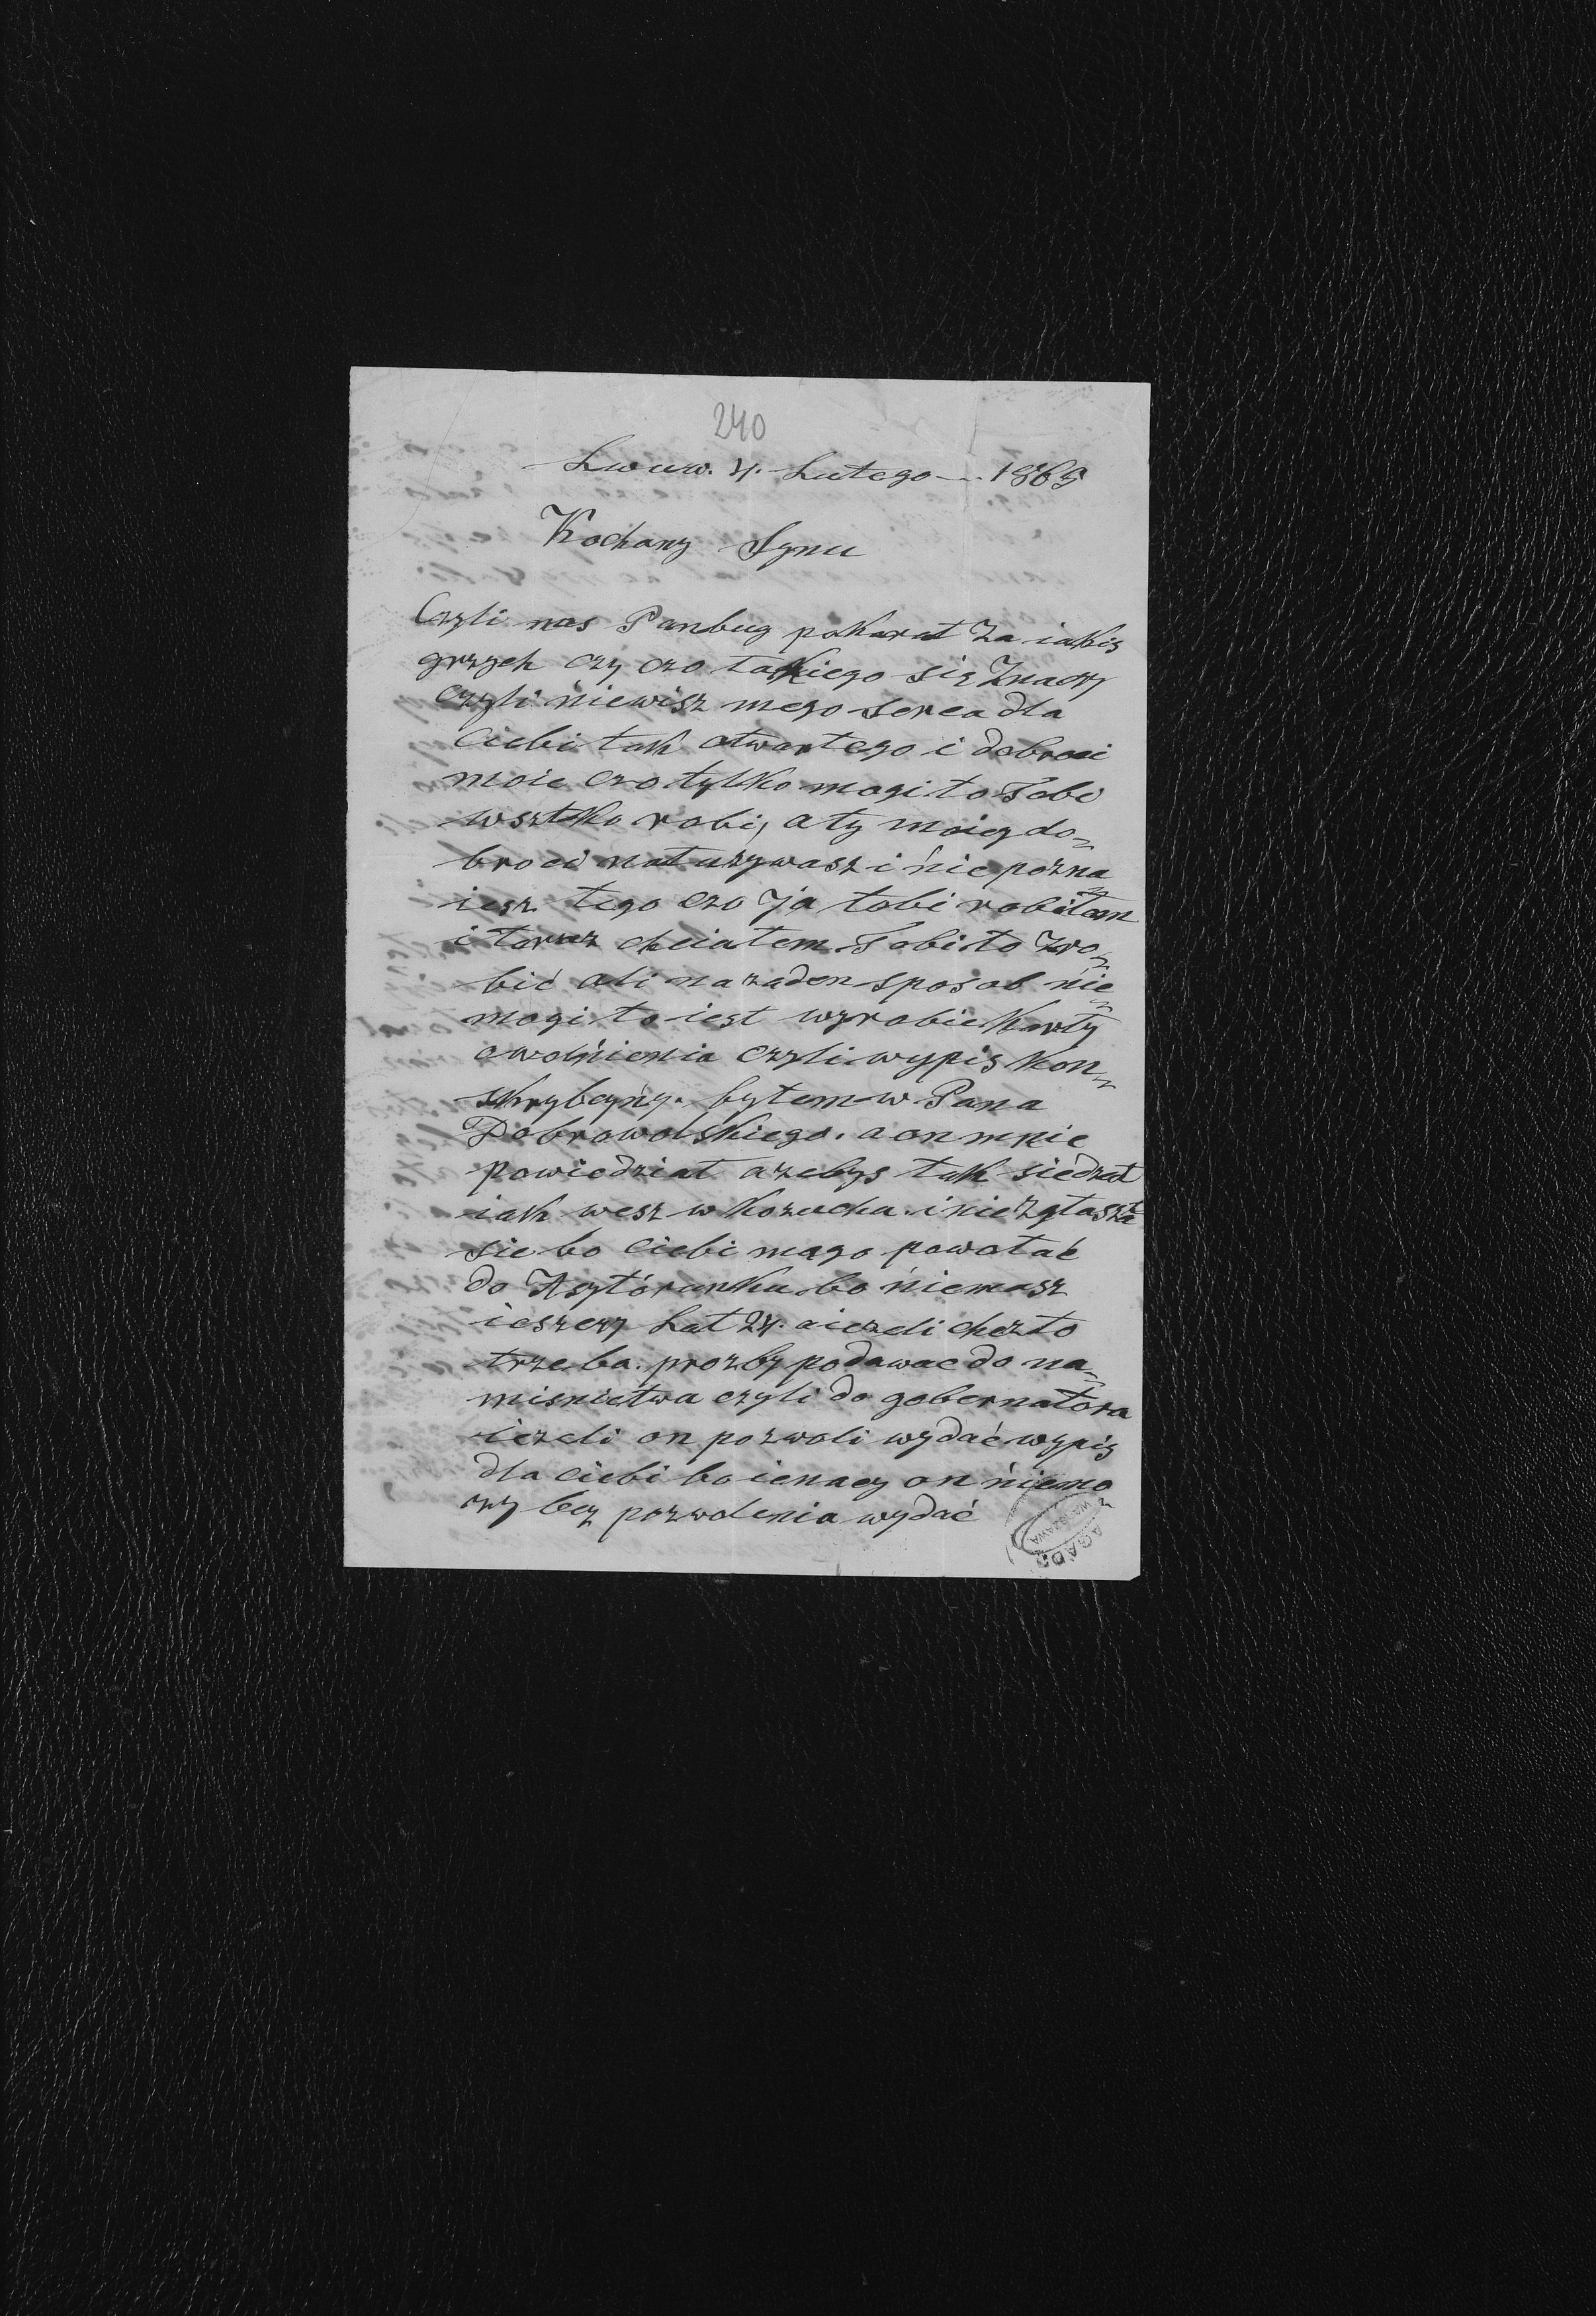 240
Lwuw. 4. Lutego 1865
Kochany Synu
Czyli nas Panbug pokarał Za iakis
grzych czy czo takiego się Znaczy
czyli niewisz mego serca dla
Ciebi tak otwartego i dobroci
moie czo tylko mogi to Tobi
wsztko robię a ty moiey do=
broci natużywasz i nie pozna
iesz tego czo Ja tobi robiłam
i teraz chciałem Tobi to zro=
bić ali na zaden sposob nie=
mogi to iest wyrobic Karty
owolnienia czyli wypis kon=
skrybcyny. byłem w Pana
Dobrowolskiego. a on mnie
powiedział azebys tak siedzał
iak wesz w kozucha. i nie zgłaszał
sie bo Ciebi mago powołać
do bo niemasz
ieszczy Lat 24. aiezeli chcz to
trzeba. prozby podawac do na=
misnictwa czyli do gobernatora
iezeli on pozwoli wydać wypis
dla ciebi bo ienaczy on niemo
zy bez pozwolenia wydać
AGAD
WARSZAWA